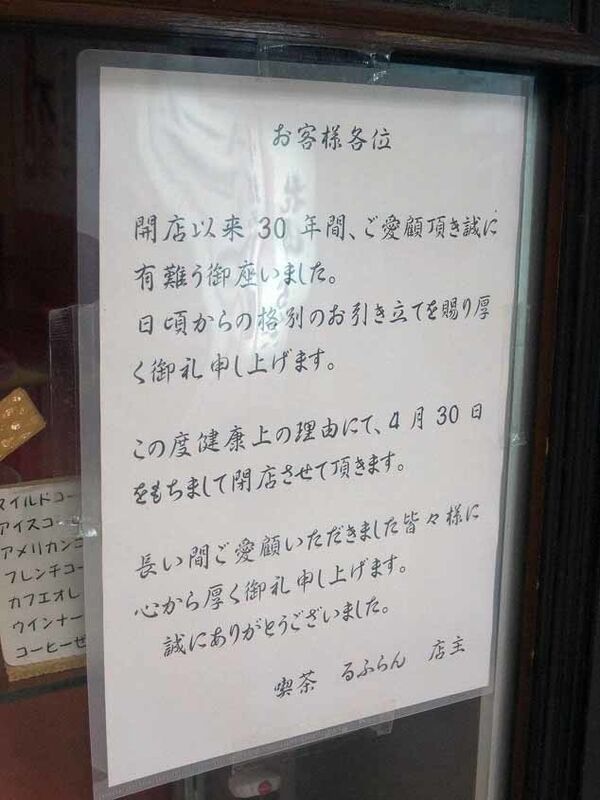 お客様各位
開店以来 30 年間、ご愛顧頂き誠に
有難う御座いました。
日頃からの格別のお引き立てを賜り厚
く御礼申し上げます。
この度健康上の理由にて、4 月 30 日
をもちまして閉店させて頂きます。
長い間ご愛顧いただきました皆々様に
心から厚く御礼申し上げます。
誠にありがとうございました。
喫茶 るふらん 店主
マイルドコー
アイスコー
アメリカンコ
フレンチコー
カフエオレ
ウインナー
コーヒーゼ